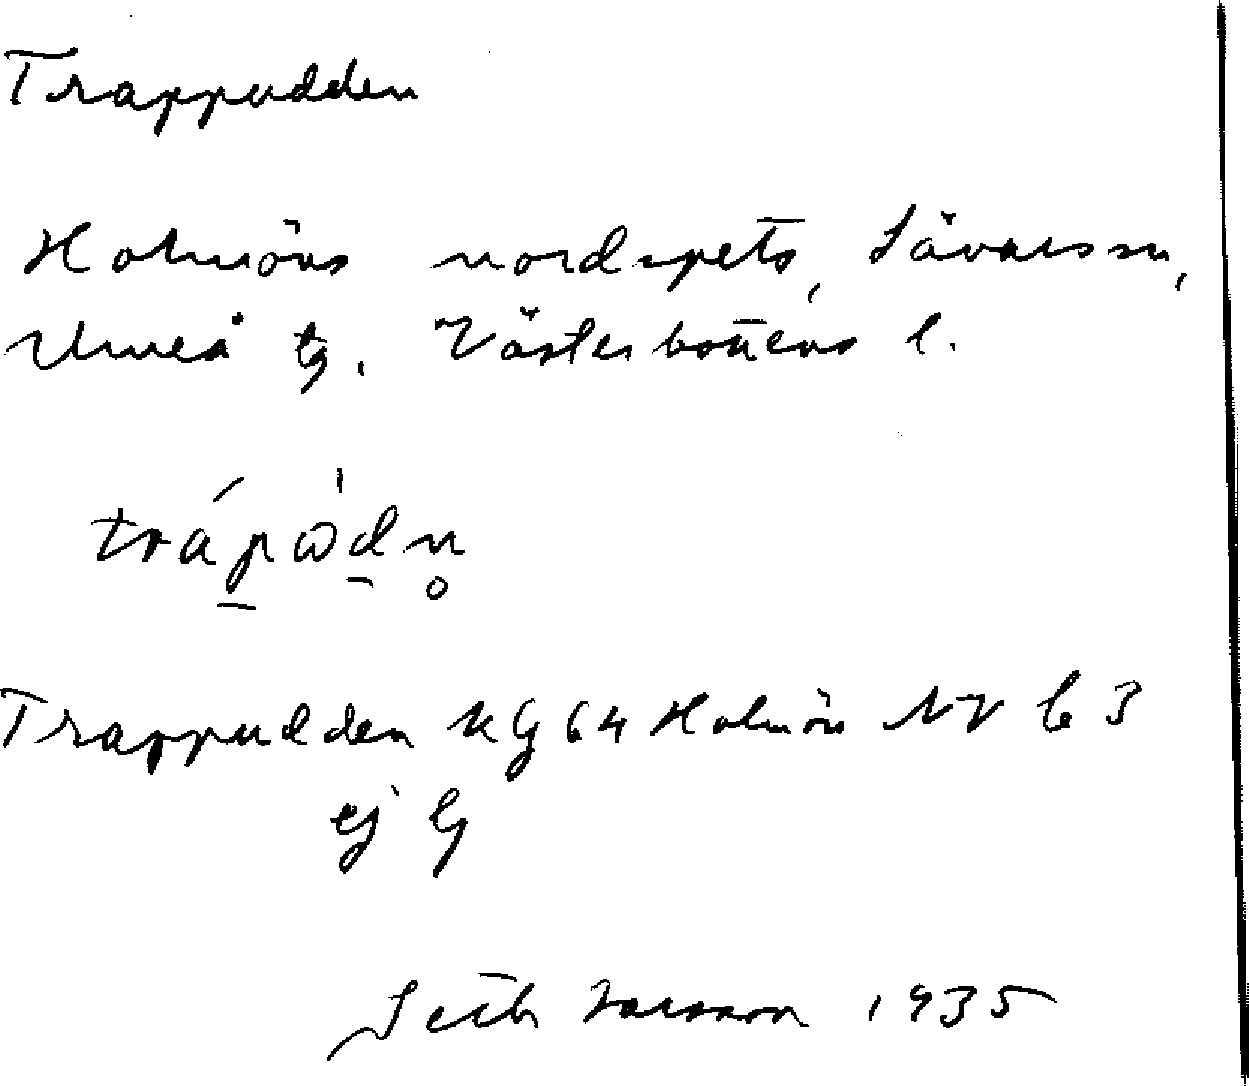 Trappudden
Holmöns nordspets, Sävars sn,
Umeå tg. Västerbottens l.
trápὼdn̥
Trappudden KG 64 Holmön NV b 3
ej G
Seth Larsson 1935